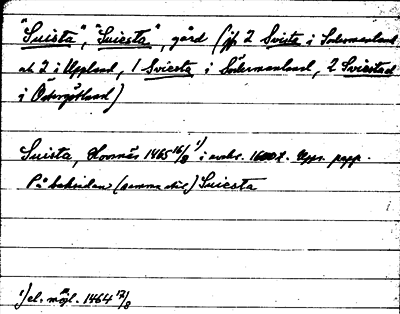 "Suista", "Suiesta", gård (jfr 2 Svista i Södermanland
ch 2 i Uppland, 1 Sviesta i Södermanland, 2 Sviestad
i Östergötland)
Suista, Hornäs 1465 16/8 1) i avskr. 1600 t. Upps. papp.
På baksidan (samma stil) Suiesta
1) el. möjl. 1464 17/8